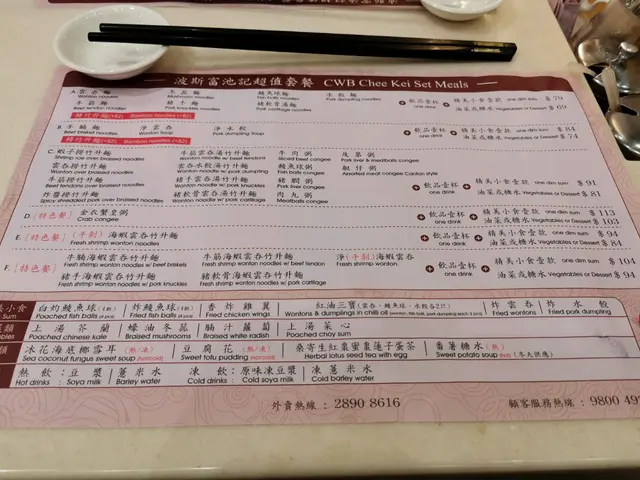 波斯富池記超值套餐 CWB Chee Kei Set Meals
A. 雲吞麵 Wonton noodles
牛筋麵 Beef tendon noodles
Mushroom noodles
豬手麵 Pork knuckles noodles
鯪魚球麵 Fish balls noodles
豬軟骨湯麵 Pork cartilage noodles
水餃麵 Pork dumpling noodles
轉竹升麵(+$2) Bamboo noodles (+$2)
飲品壹杯 one drink
精美小食壹款 one dim sum $ 79
油菜或糖水 Vegetables or Dessert $ 69
B. 牛腩麵 Beef brisket noodles
淨雲吞 Wonton soup
淨水餃 Pork dumpling soup
轉竹升麵(+$2) Bamboo noodles (+$2)
飲品壹杯 one drink
精美小食壹款 one dim sum $ 84
油菜或糖水 Vegetables or Dessert $ 74
C. 蝦子撈竹升麵 Shrimp roe over braised noodles
牛筋雲吞竹升麵 Wonton noodles w/ beef tendons
牛肉粥 Sliced beef congee
及第粥 Pork liver & meatballs congee
雲吞撈竹升麵 Wonton over braised noodles
雲吞水餃湯竹升麵 Wonton noodles w/ pork dumpling
鯪魚球粥 Fish balls congee
艇仔粥 Assorted meat congee Canton style
牛筋撈竹升麵 Beef tendons over braised noodles
豬手雲吞竹升麵 Wonton noodles w/ pork knuckles
豬膶粥 Pork liver congee
炸醬撈竹升麵 Spicy shredded pork over braised noodles
豬軟骨雲吞湯竹升麵 Wonton noodles w/ pork cartilage
肉丸粥 Meatballs congee
飲品壹杯 one drink
精美小食壹款 one dim sum $ 91
油菜或糖水 Vegetables or Dessert $ 81
D. [特色餐] 金衣蟹皇粥 Crab congee
飲品壹杯 one drink
精美小食壹款 one dim sum $ 113
油菜或糖水 Vegetables or Dessert $ 103
E. [特色餐] (手剝)海蝦雲吞竹升麵 Fresh shrimp wonton noodles
飲品壹杯 one drink
精美小食壹款 one dim sum $ 94
油菜或糖水 Vegetables or Dessert $ 84
F. [特色餐]
牛腩海蝦雲吞竹升麵 Fresh shrimp wonton noodles w/ beef briskets
牛筋海蝦雲吞竹升麵 Fresh shrimp wonton noodles w/ beef tendons
淨(手剝)海蝦雲吞 Fresh shrimp wonton
豬手海蝦雲吞竹升麵 Fresh shrimp wonton noodles w/ pork knuckles
豬軟骨海蝦雲吞竹升麵 Fresh shrimp wonton noodles w/ pork cartilage
飲品壹杯 one drink
精美小食壹款 one dim sum $ 104
油菜或糖水 Vegetables or Dessert $ 94
美小食 Sum
白灼鯪魚球(8粒) Poached fish balls (8 pcs)
炸鯪魚球(8粒) Fried fish balls (8 pcs)
香炸雞翼 Fried chicken wings
紅油三寶(雲吞、鯪魚球、水餃各2只) Wontons & dumplings in chilli oil
炸雲吞 Fried wontons
炸水餃 Fried pork dumpling
菜類
上湯芥蘭 Poached chinese kale
蠔油冬菰 Braised mushrooms
腩汁蘿蔔 Braised white radish
上湯菜心 Poached choy sum
冰花海底椰雪耳(熱/凍) Sea coconut fungus sweet soup (hot/cold)
豆腐花(熱/凍) Sweet tofu pudding (hot/cold)
桑寄生紅棗蜜棗蓮子蛋茶 Herbal lotus seed tea with egg
番薯糖水(熱) Sweet potato soup (hot) (冬天供應)
熱飲:豆漿 Hot drinks : Soya milk
薏米水 Barley water
凍飲:原味凍豆漿 Cold drinks : Cold soya milk
凍薏米水 Cold barley water
外賣熱線 : 2890 8616
顧客服務熱線 : 9800 49